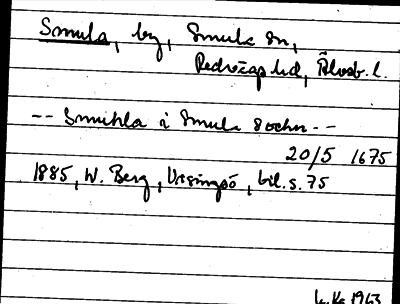 Smula, by, Smula sn,
Redvägs hd, Älvsb. l.
-- Smuhla i Smula Sochn --
20/5 1675
1885, W. Berg, Visingsö, bil. s. 75
1963